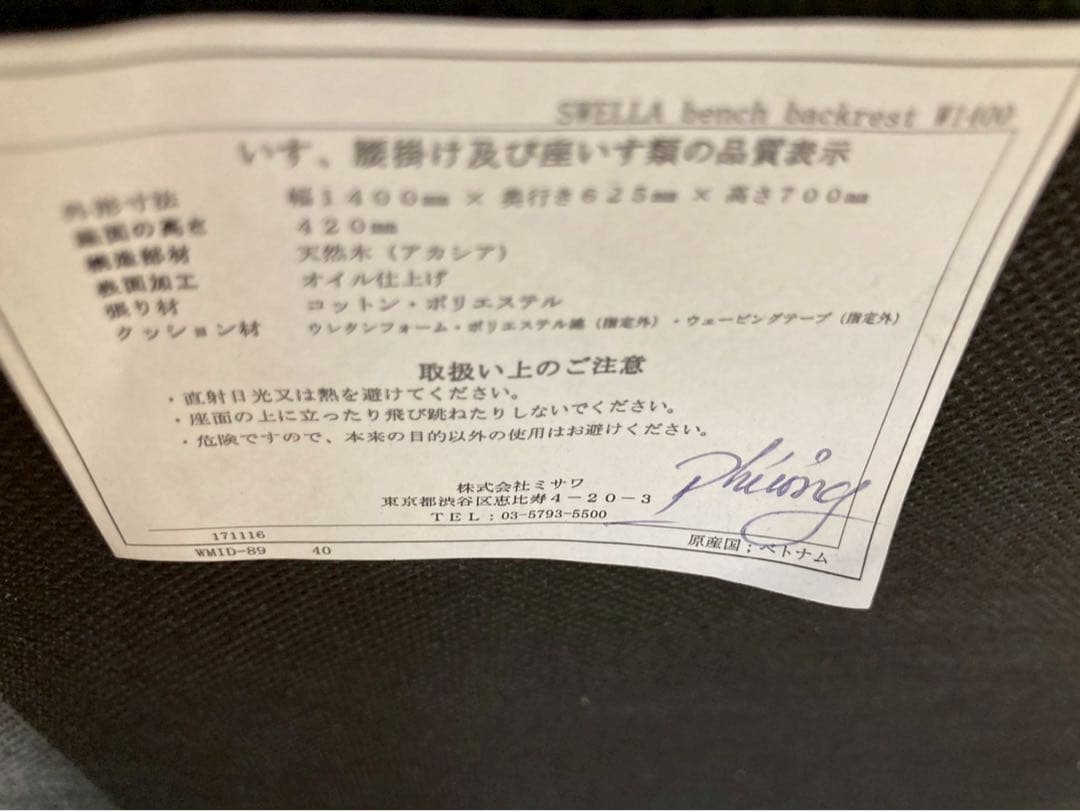 SWELLA bench backrest W1400
いす、腰掛け及び座いす類の品質表示
外形寸法 幅1400㎜ × 奥行き625㎜ × 高さ700㎜
座面の高さ 420㎜
構造部材 天然木（アカシア）
表面加工 オイル仕上げ
張り材 コットン・ポリエステル
クッション材 ウレタンフォーム・ポリエステル綿（指定外）・ウェービングテープ（指定外）
取扱い上のご注意
・直射日光又は熱を避けてください。
・座面の上に立ったり飛び跳ねたりしないでください。
・危険ですので、本来の目的以外の使用はお避けください。
株式会社ミサワ
東京都渋谷区恵比寿4－20－3
TEL：03-5793-5500
Phương
171116
WMID-89 40
原産国；ベトナム